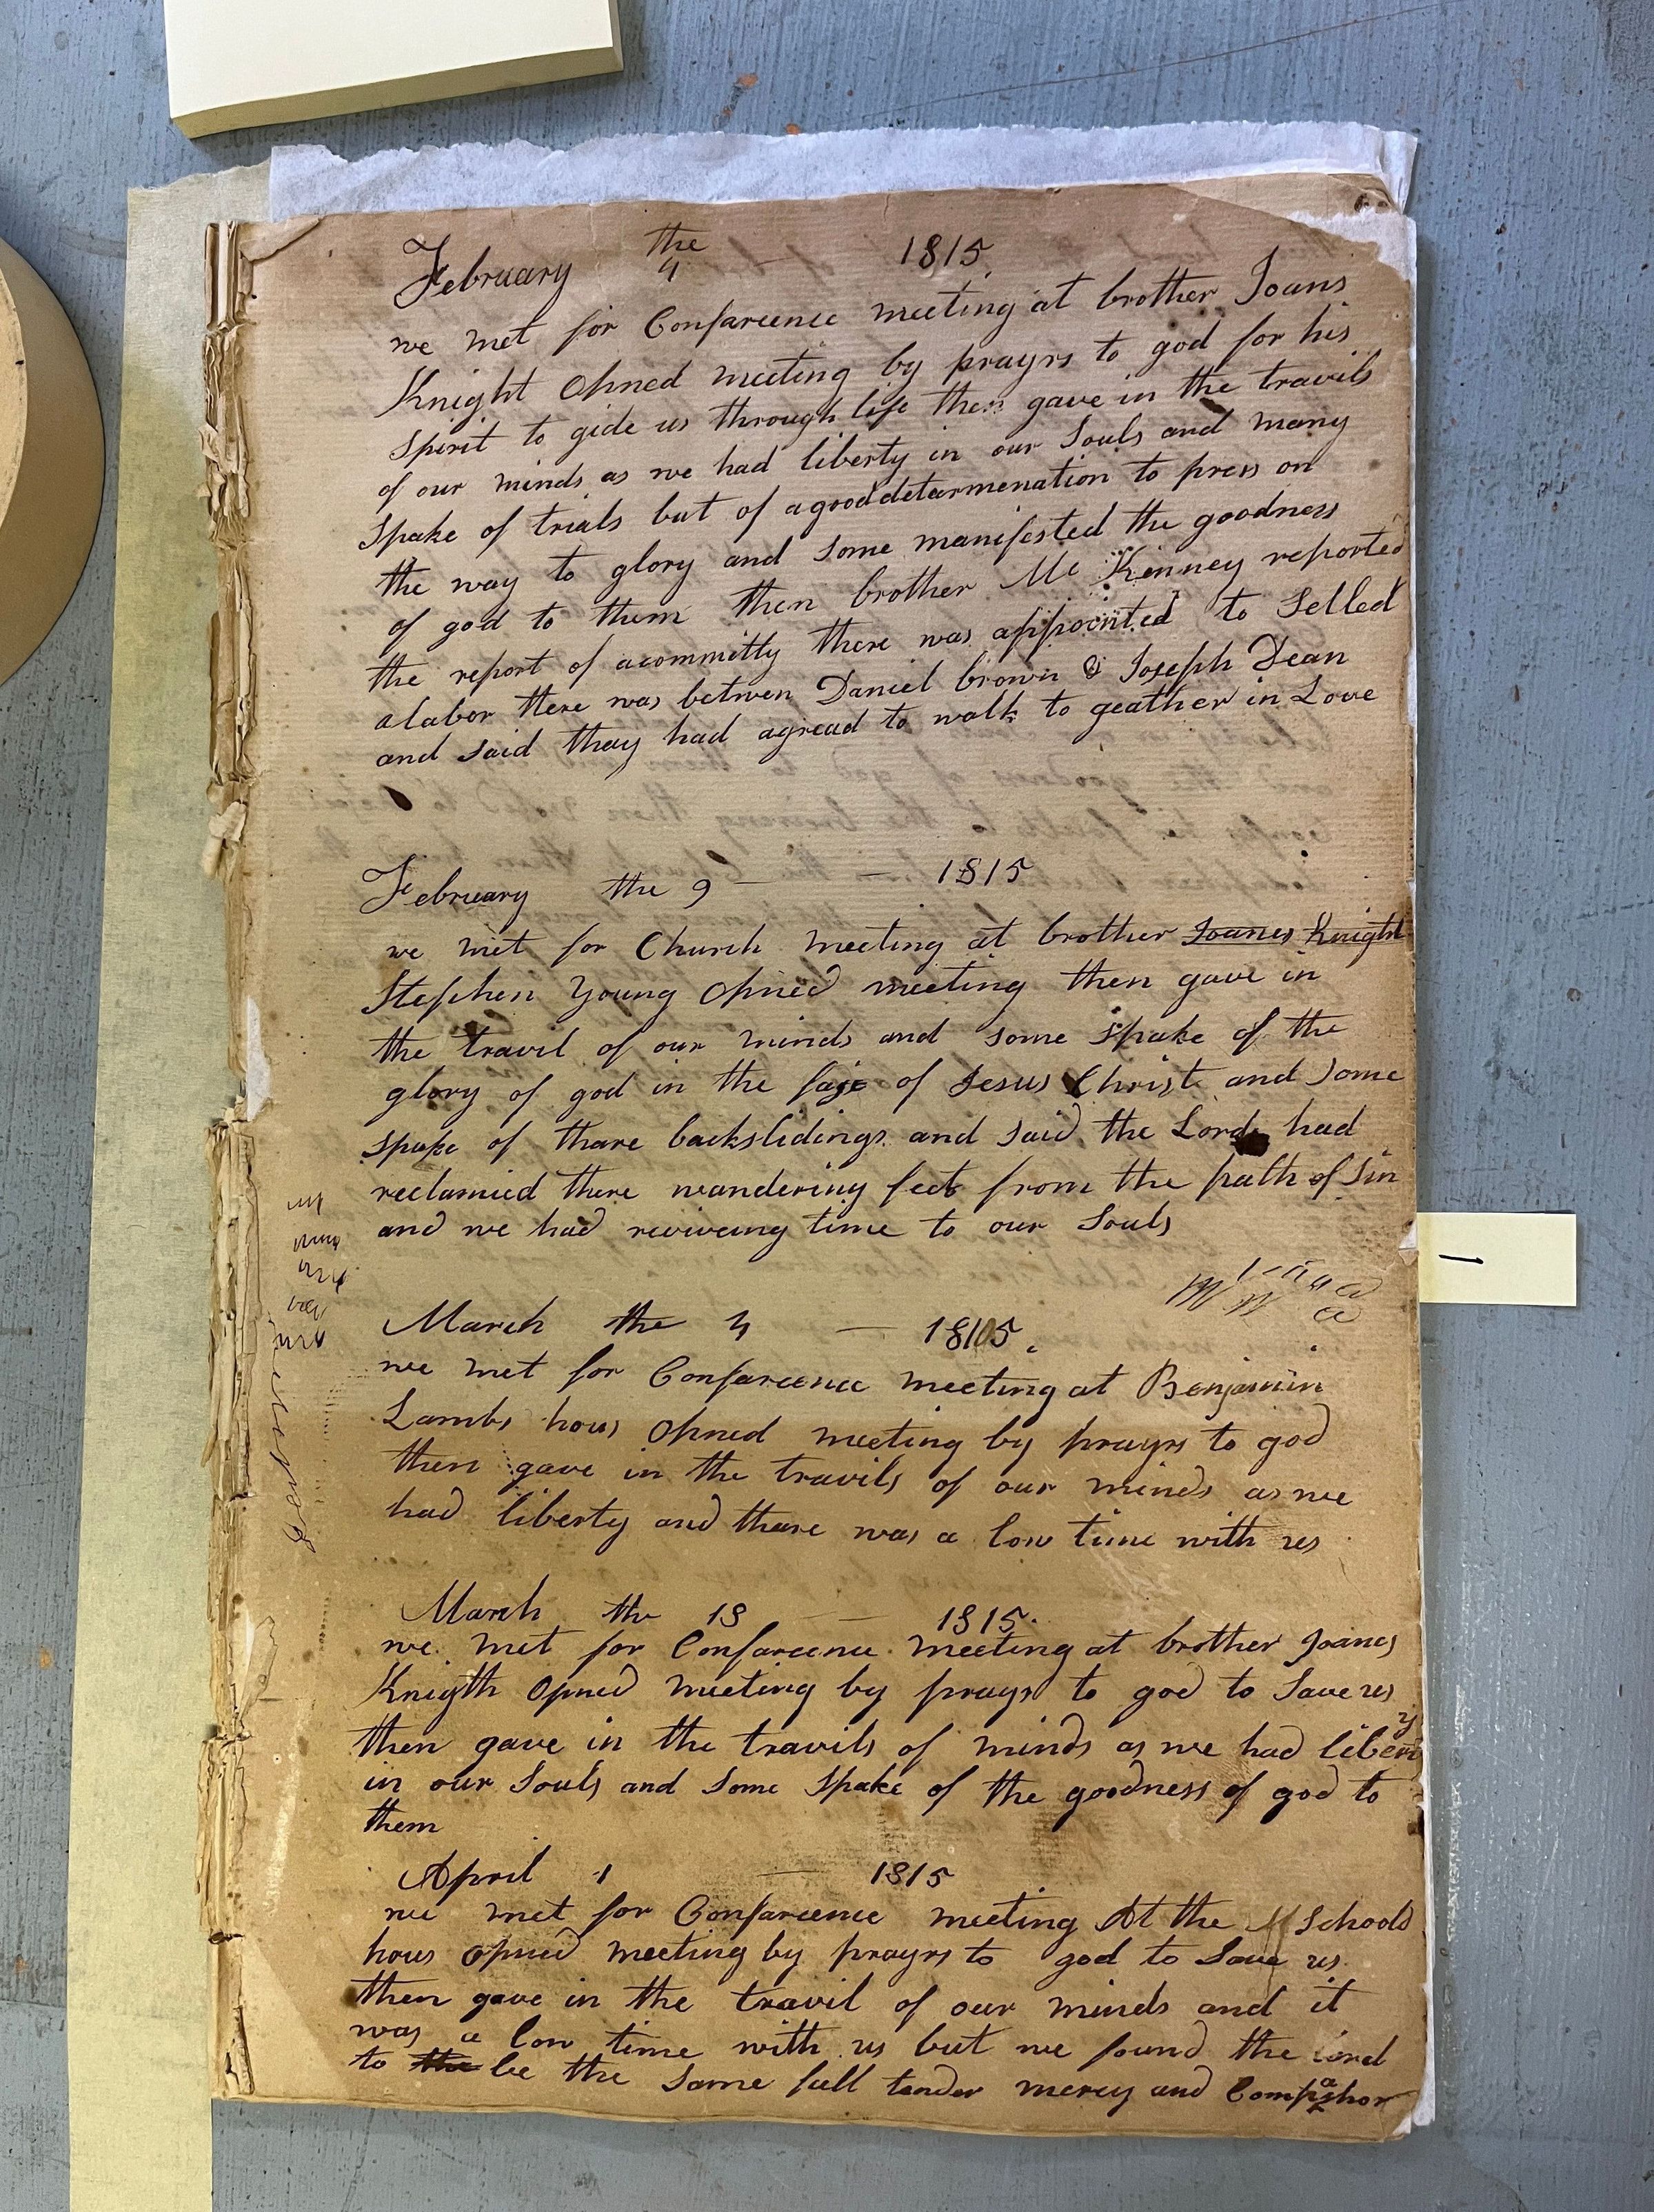 February the 4 1815
we met for Confarcence meeting at brother Joans
Knight Opned meeting by prayrs to god for his
spirit to gide us through life then gave in the travils
of our minds as we had liberty in our Souls and many
Spake of trials but of a good detarmenation to press on
the way to glory and some manifested the goodness
of god to them then brother Mc Kenney reported
the report of acommitty there was appointed to Selled
alabor there was betwen Daniel brown & Joseph Dean
and said thay had agread to walk to geather in Love
February the 9 — — 1815
we met for Church meeting at brother Joanes Knight
Stephen Young Opned meeting then gave in
the travil of our minds and some spake of the
glory of god in the fase of Jesus Christ and Some
spake of thare backslidings and said the Lord had
reclamied there wandering feet from the path of Sin
and we had reviveing time to our Souls
March the 4 — 1815
we met for Confarcence meeting at Benjamin
Lambs hous Opned meeting by prayrs to god
then gave in the travils of our minds as we
had liberty and thare was a low time with us
March the 18 — 1815.
we met for Confarcence meeting at brother Joanes
Knigth Opned meeting by prayrs to god to Save us
then gave in the travils of minds as we had liberty
in our Souls and Some Spake of the goodness of god to
them
April 1 — 1815
we met for Confarcence meeting At the Schools
hous opned meeting by prayrs to god to Save us
then gave in the travil of our minds and it
was a low time with us but we found the lord
to the be the Same full tender mercy and Compashon